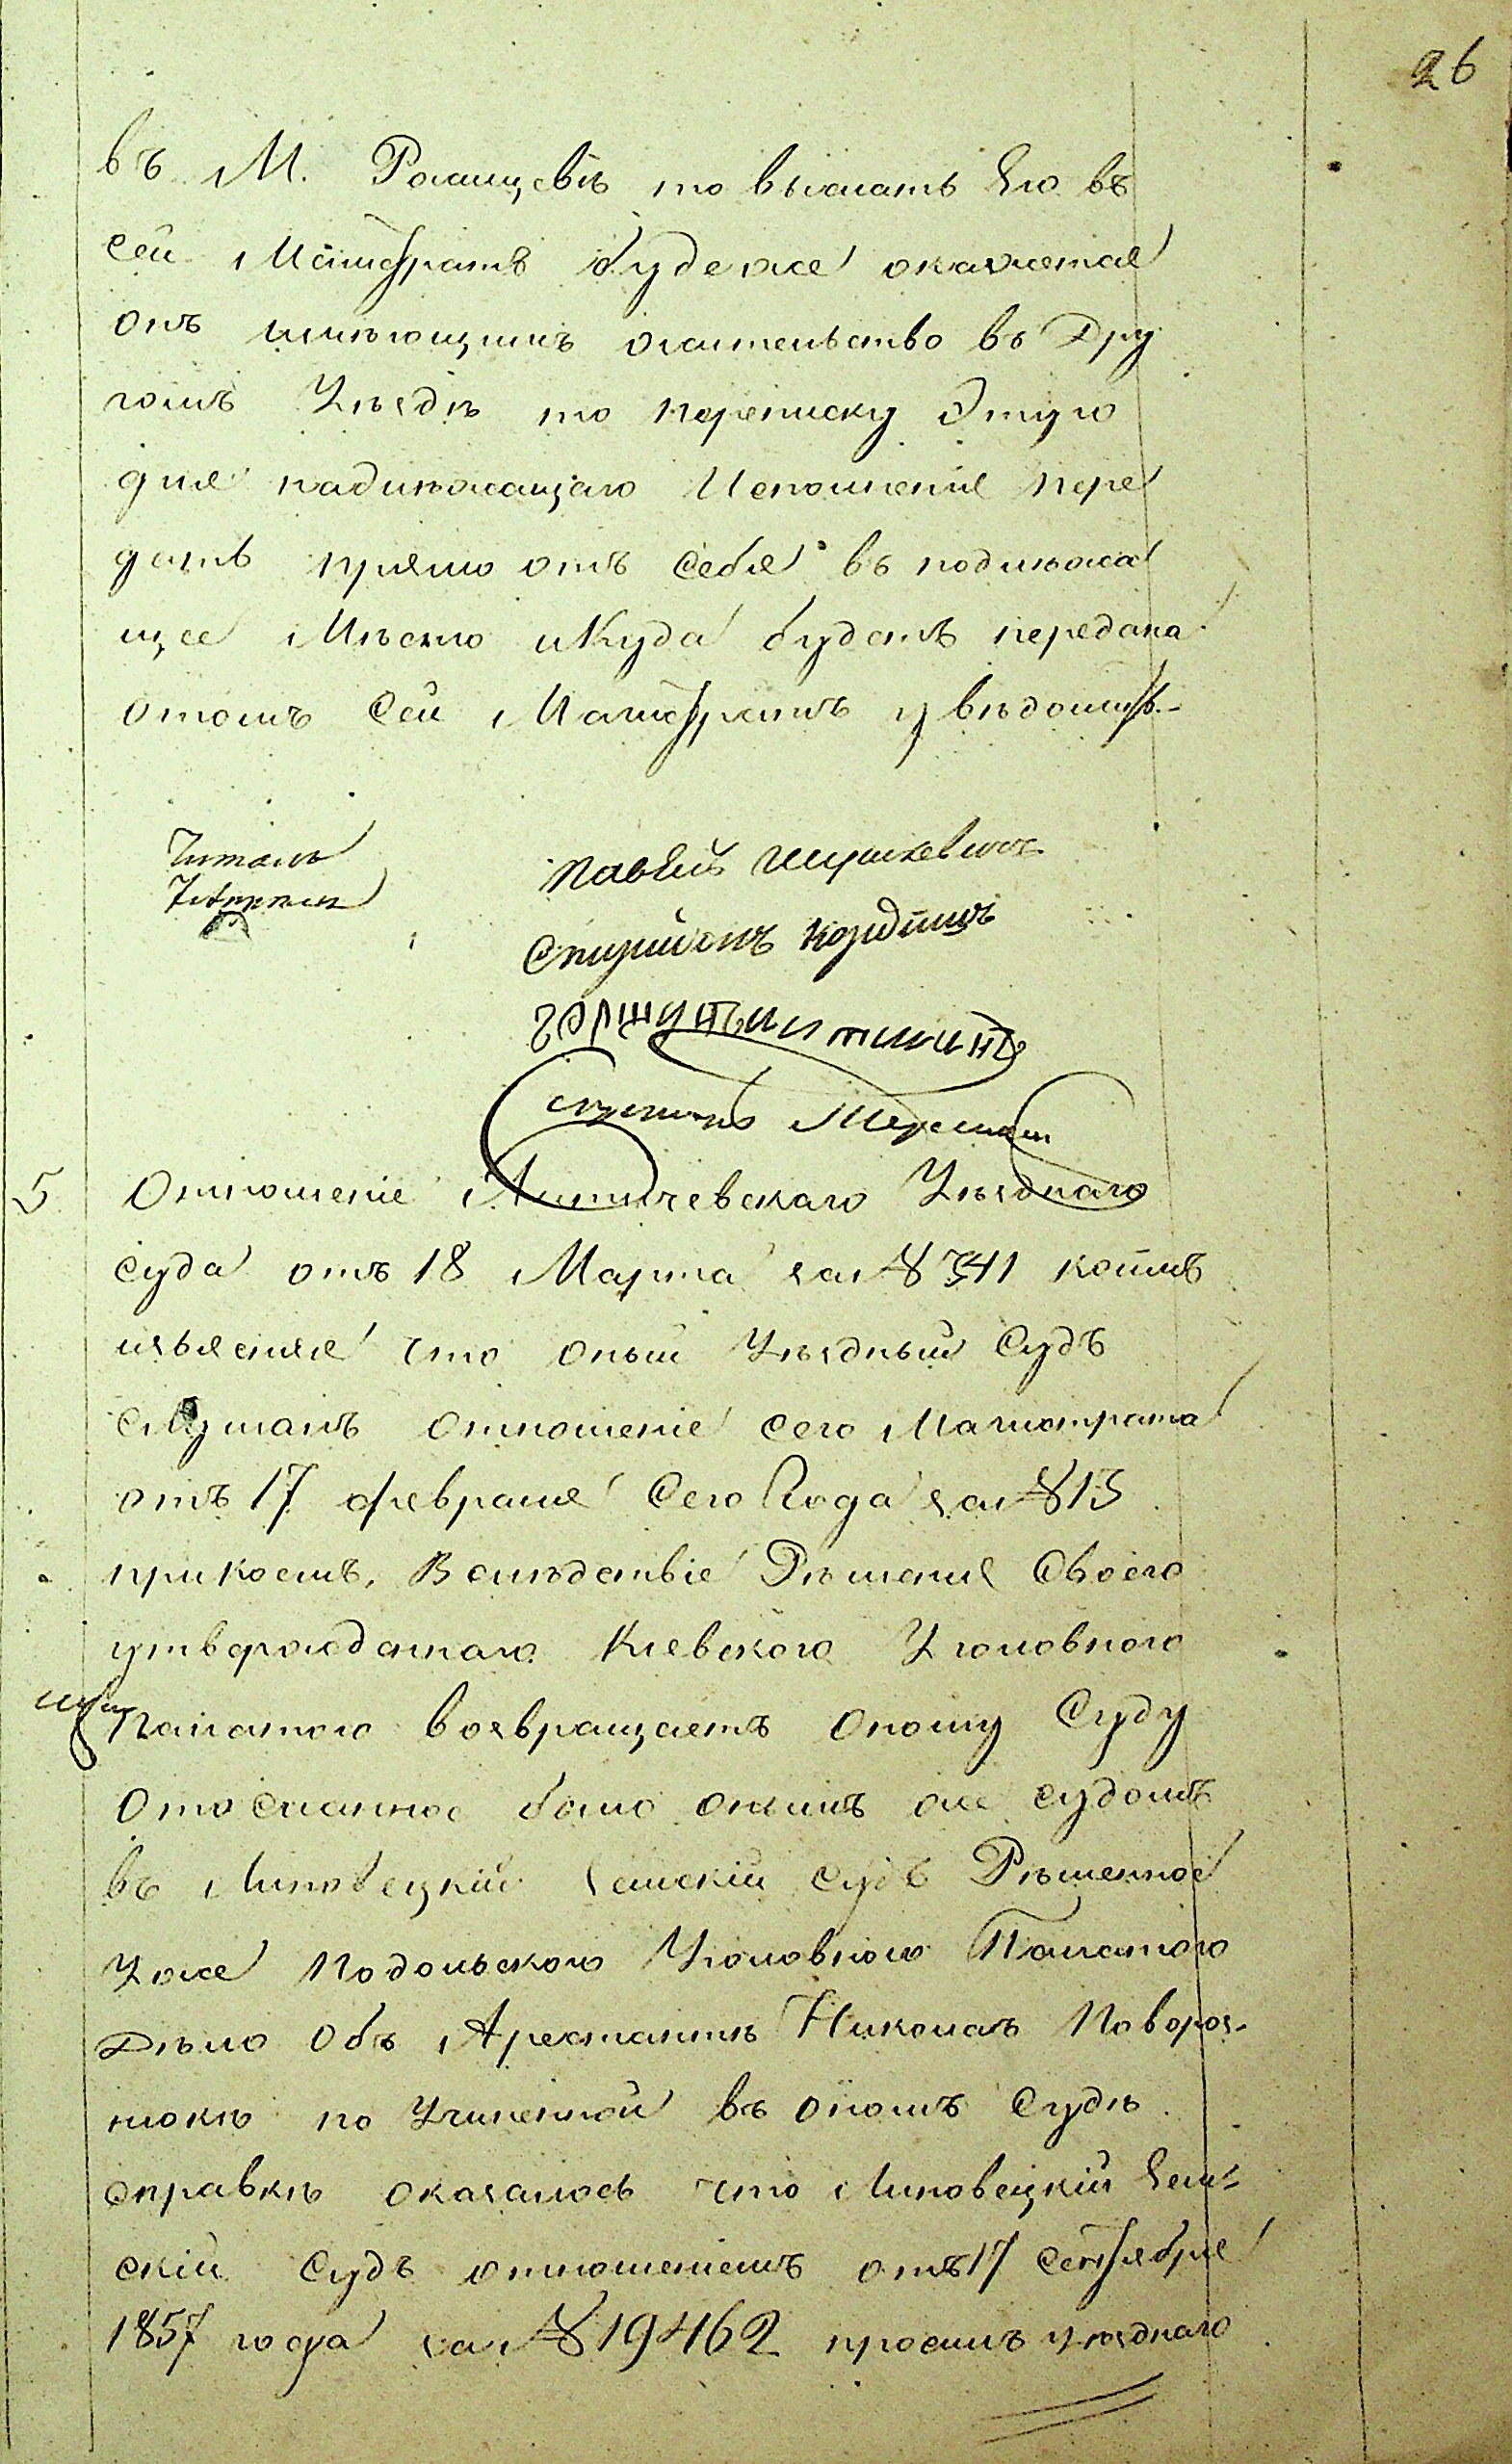 26
въ М. то выслать Его въ
Сей Магистратъ буде же окажется
онъ имѣющимъ жительство въ Дру
гомъ Уѣздѣ то переписку Этую
для надлежащаго Исполненія пере
дать прямо отъ Себя въ подлежа
щее Мѣсто и Куда будетъ передана
отомъ Сей Магистратъ увѣдомить.-
Читалъ
Павелъ
горшунъ
5 Отношеніе Летичевскаго Уѣзднаго
Суда отъ 18 Марта за № 741 коимъ
изъясняя что оный Уѣздный Судъ
слушалъ отношеніе сего Магистрата
отъ 17 февраля Сего Года за № 13
прикоемъ, Вслѣдствіе Рѣшенія Своего
утвержденнаго Кіевскою Уголовною
Палатою возвращаетъ Оному Суду
Отосланное было онымъ же судомъ
въ Липовецкій Земскій Судъ Рѣшенное
Уже Подольскою Уголовною Палатою
Дѣло Объ Арестантѣ НиколаѣПовороз-
нюкѣ по Учиненной въ ономъ Судѣ
справкѣ оказалось что Липовецкій Зем-
скій Судъ отношеніемъ отъ 17 Сентября
1857 года за № 19462 просилъ уѣзднаго